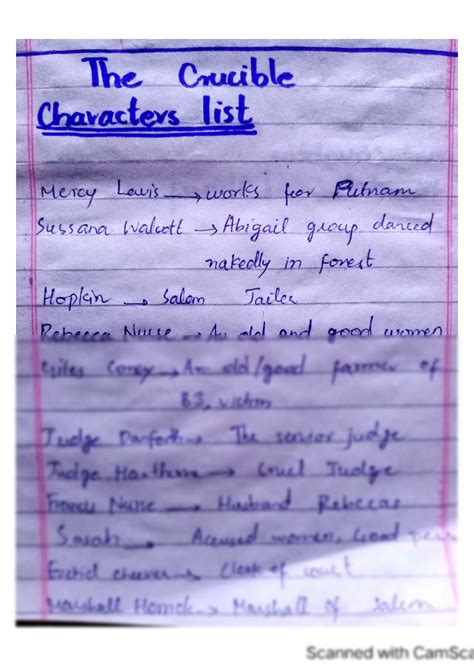 The Crucible
Characters list
Mercy Lewis → works for Putnam
Sussana Walcott → Abigail group danced
nakedly in forest
Hopkin → Salem Jailer
Rebecca Nurse → An old and good women
Giles Corey → An old/good farmer of
83, victim
Judge Danforth → The senior judge
Judge Hawthorne → Cruel Judge
Francis Nurse → Husband Rebecca
Sarah → Accused women, Good
cheever → Clerk of court
Marshall → Marshall of salem
Scanned with CamSca